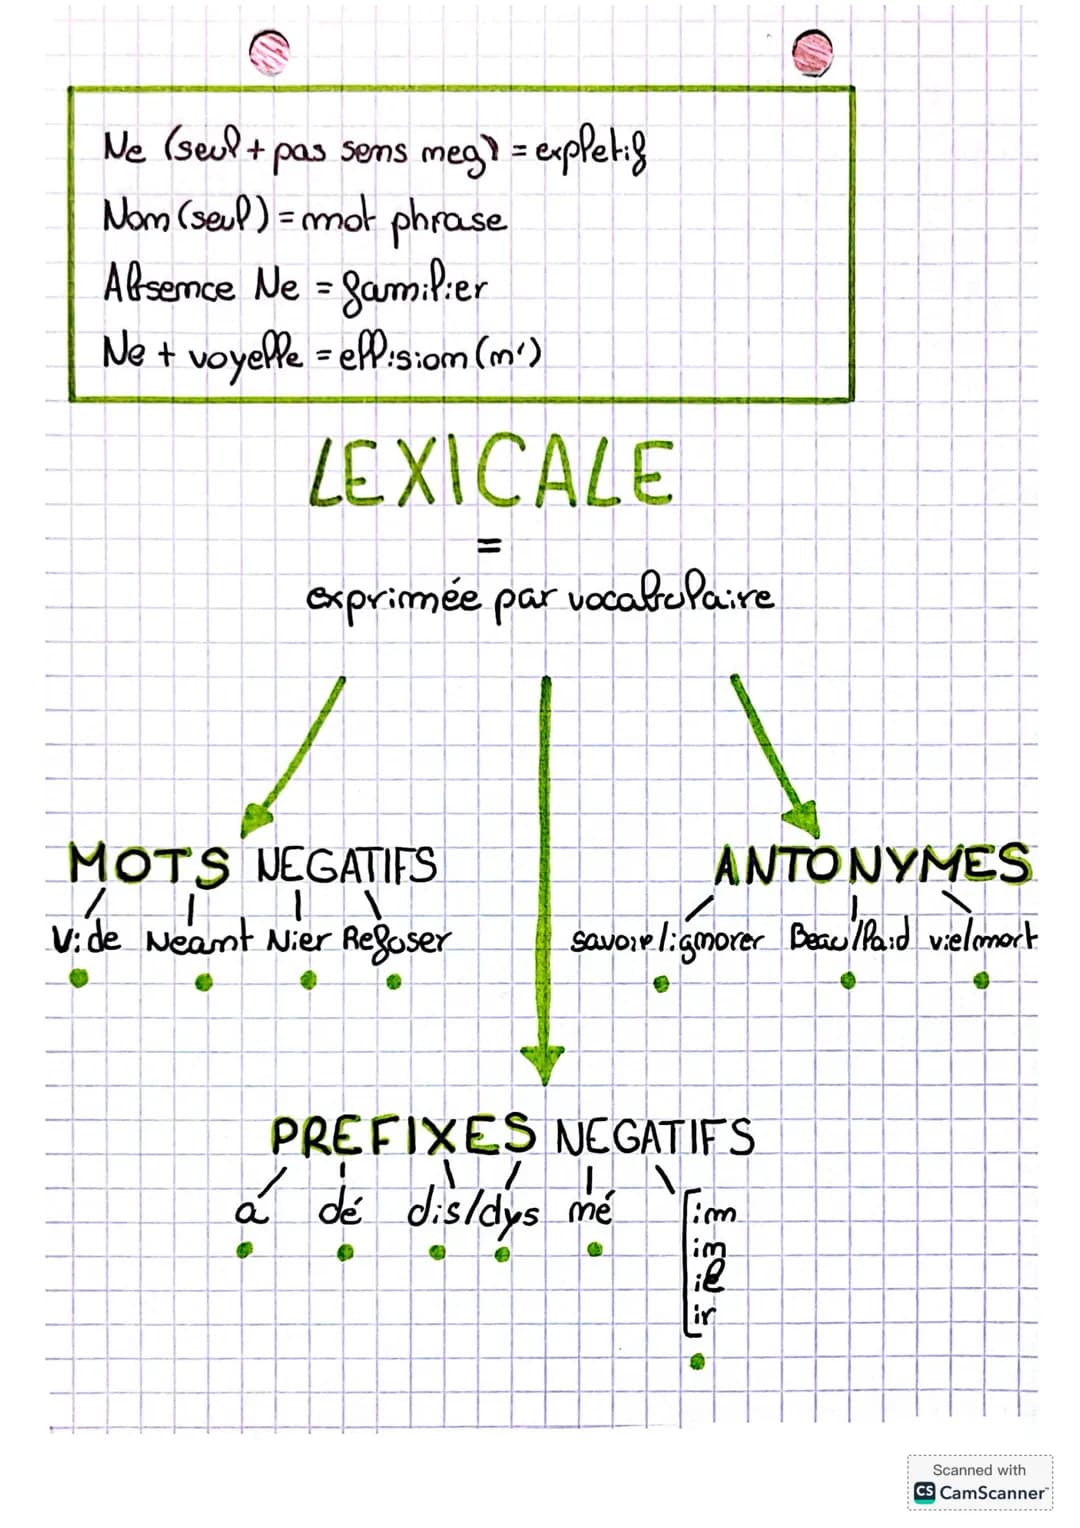 Ne (seul + pas sens neg) = expletif
Non (seul) = mot phrase
Absence Ne = familier
Ne + voyelle = ellision (n')
LEXICALE
=
exprimée par vocabulaire
MOTS NEGATIFS
ANTONYMES
Vide Néant Nier Refuser
savoir/ignorer Beau/laid vie/mort
PREFIXES NEGATIFS
a dé dis/dys mé
in
im
il
ir
Scanned with
CS CamScanner